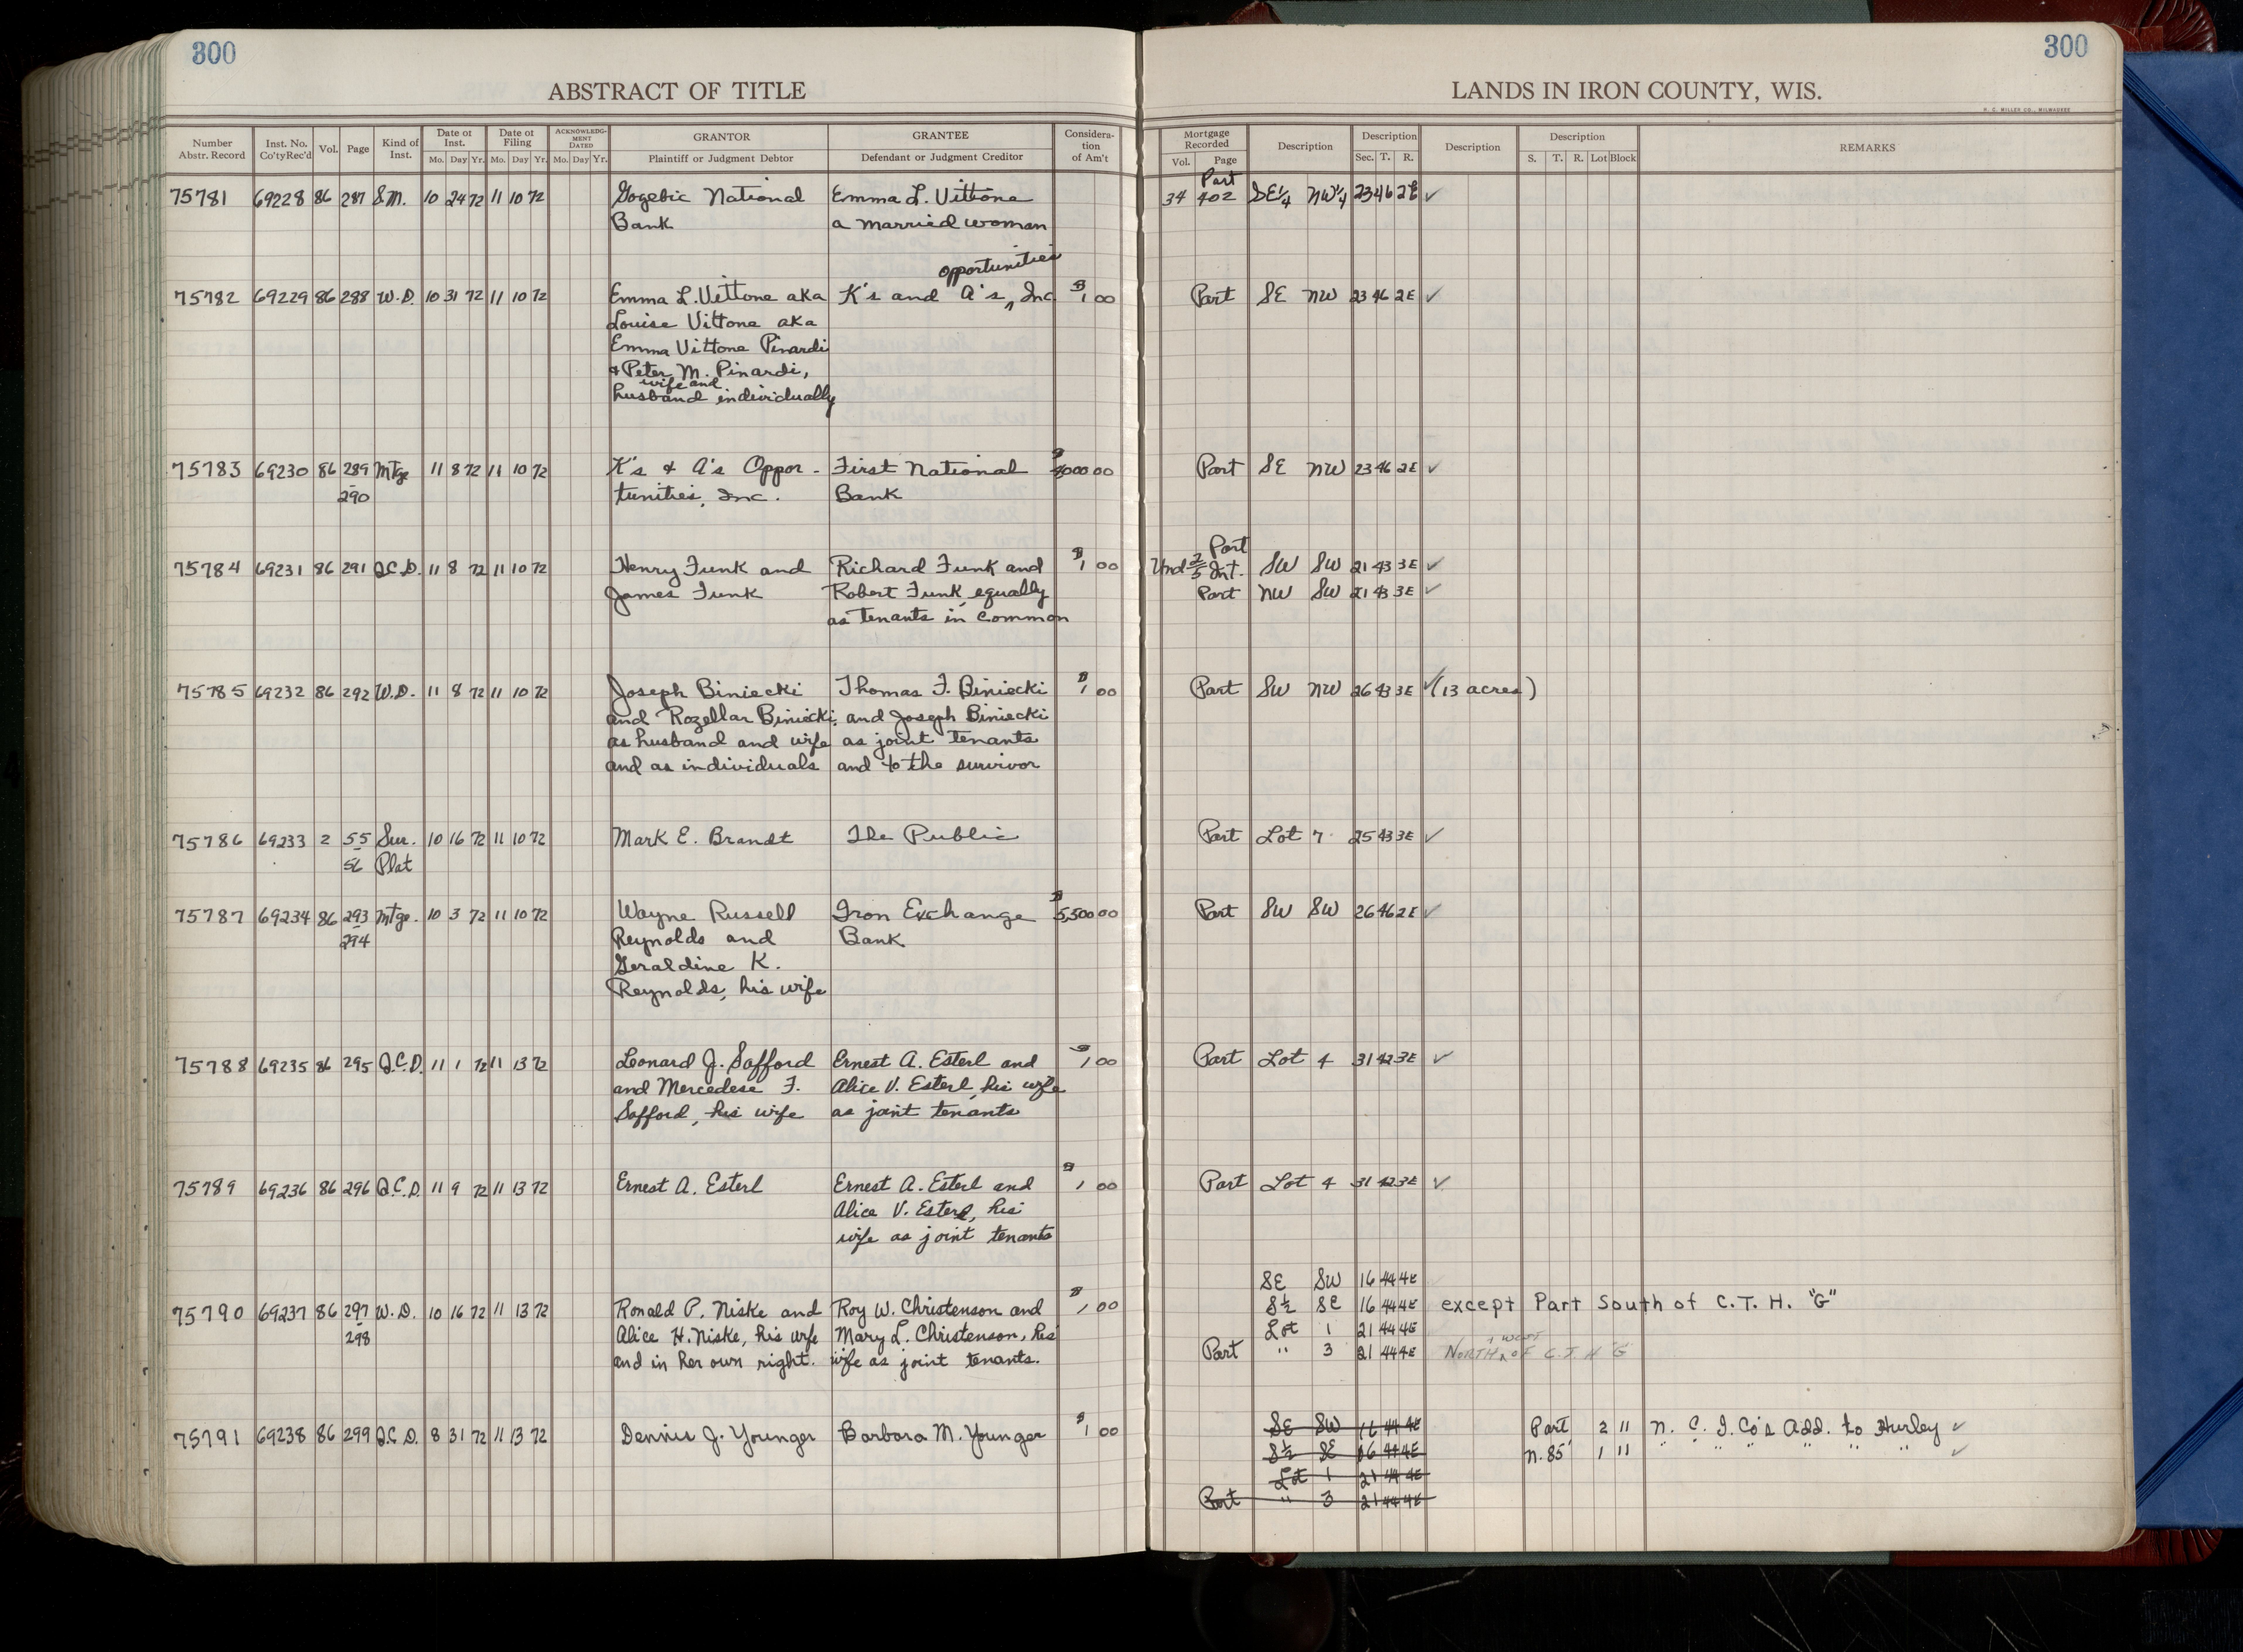 300
300
ABSTRACT OF TITLE
LANDS IN IRON COUNTY, WIS.
H. C. MILLER CO., MILWAUKEE
Number Abstr. Record Inst. No. Co'tyRec'd Vol. Page Kind of Inst. Date of Inst. Mo. Day Yr. Date of Filing Mo. Day Yr. ACKNOWLEDGMENT DATED Mo. Day Yr. GRANTOR Plaintiff or Judgment Debtor GRANTEE Defendant or Judgment Creditor Consideration of Am't Mortgage Recorded Vol. Page Description Description Sec. T. R. Description Description S. T. R. Lot Block REMARKS
Part
75781 69228 86 287 S.M. 10 24 72 11 10 72 Gogebic National Emma L. Vittone 34 402 SE1/4 NW1/4 23 46 2E ✓
Bank a married woman
opportunities
75782 69229 86 288 W.D. 10 31 72 11 10 72 Emma L. Vittone aka K's and A's ^ Inc $1 00 Part SE NW 23 46 2E ✓
Louise Vittone aka
Emma Vittone Pinardi
& Peter M. Pinardi,
wife and
husband individually
75783 69230 86 289 Mtge 11 8 72 11 10 72 K's & A's Oppor- First National 00 Part SE NW 23 46 2E ✓
290 tunities, Inc. Bank
Part
75784 69231 86 291 Q.C.D. 11 8 72 11 10 72 Henry Funk and Richard Funk and $1 00 Und 2/5 Int. SW SW 21 43 3E ✓
James Funk Robert Funk, equally Part NW SW 21 43 3E ✓
as tenants in common
75785 69232 86 292 W.D. 11 8 72 11 10 72 Joseph Biniecki Thomas F. Biniecki $1 00 Part SW NW 26 43 3E ✓ (13 acres)
and Rozellar Biniecki, and Joseph Biniecki
as husband and wife as joint tenants
and as individuals and to the survivor
75786 69233 2 55 Sur. 10 16 72 11 10 72 Mark E. Brandt The Public Part Lot 7 25 43 3E ✓
56 Plat
75787 69234 86 293 Mtge. 10 3 72 11 10 72 Wayne Russell Iron Exchange $5,500 00 Part SW SW 26 46 2E ✓
294 Reynolds and Bank
Geraldine K.
Reynolds, his wife
75788 69235 86 295 Q.C.D. 11 1 72 11 13 72 Leonard J. Safford Ernest A. Esterl and $1 00 Part Lot 4 31 42 3E ✓
and Mercedese F. Alice V. Esterl, his wife
Safford, his wife as joint tenants
75789 69236 86 296 Q.C.D. 11 9 72 11 13 72 Ernest A. Esterl Ernest A. Esterl and $1 00 Part Lot 4 31 42 3E ✓
Alice V. Esterl, his
wife as joint tenants
SE SW 16 44 4E
75790 69237 86 297 W.D. 10 16 72 11 13 72 Ronald P. Niske and Roy W. Christenson and $1 00 S½ SE 16 44 4E except Part South of C.T.H. "G"
298 Alice H. Niske, his wife Mary L. Christenson, his Lot 1 21 44 4E
and in her own right. wife as joint tenants. Part " 3 21 44 4E NORTH ^ + WEST OF C.T.H "G"
75791 69238 86 299 Q.C.D. 8 31 72 11 13 72 Dennis J. Younger Barbara M. Younger $1 00 SE SW 16 44 4E Part 2 11 N. C. I. Co's Add. to Hurley ✓
S½ SE 16 44 4E N. 85' 1 11 " " " " " " ✓
Lot 1 21 44 4E
Part " 3 21 44 4E